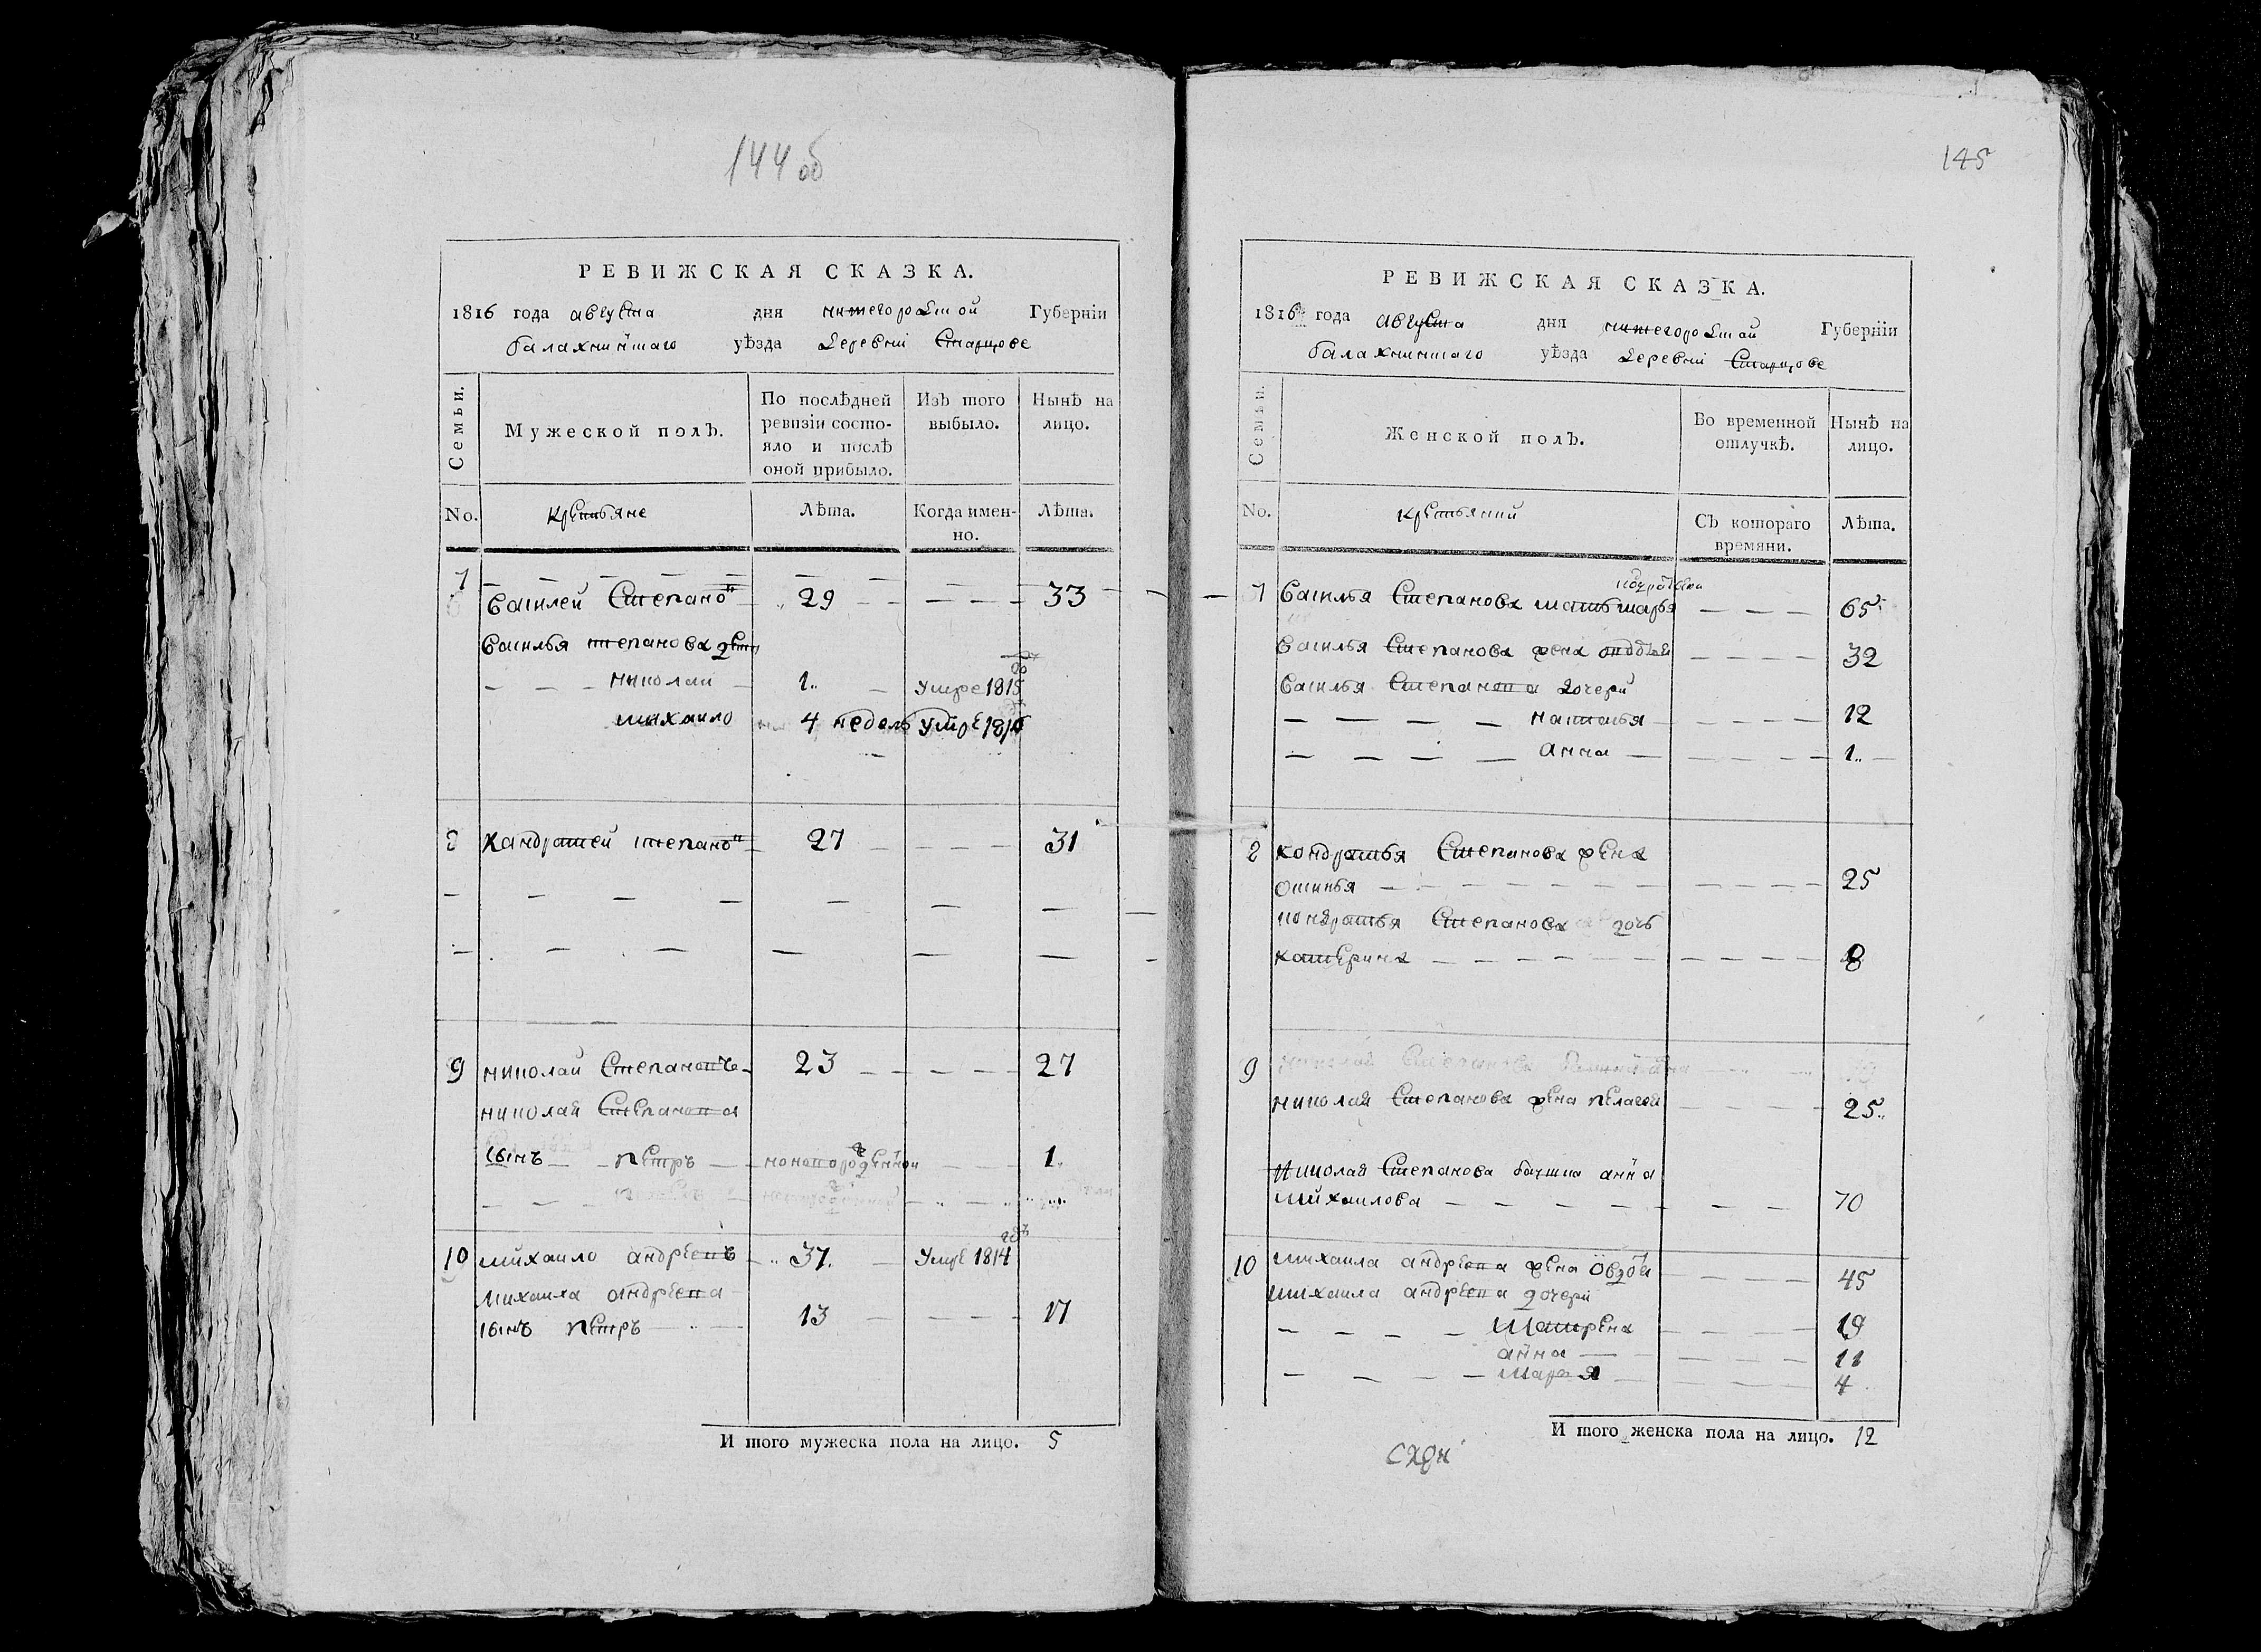 144 об
РЕВИЖСКАЯ СКАЗКА.
1816 года августа дня нижегородской Губерніи
балахнинскаго уѣзда деревни Старцове
Семьи.
Мужеской полъ.
По послѣдней ревизіи состояло и послѣ оной прибыло.
Изъ того выбыло.
Нынѣ на лицо.
No. крестьяне Лѣта. Когда именно. Лѣта.
7 василей Степановъ 29 33
василья степанова дети
николай 1 умре 1815
михаило 4 недель умре 1815
8 Кандратей степановъ 27 31
9 николай Степановъ 23 27
николая Степанова
сынъ петръ новорожденной 1
10 михаило андреевъ 37 умре 1814
михаила андреева
сынъ петръ 13 17
И того мужеска пола на лицо. 5
145
РЕВИЖСКАЯ СКАЗКА.
1816 года августа дня нижегородской Губерніи
балахнинскаго уѣзда деревни Старцове
Семьи.
Женской полъ.
Во временной отлучкѣ.
Нынѣ на лицо.
No. крестьянки Съ котораго времяни. Лѣта.
7 василья Степанова мать марья 65
василья Степанова жена 32
василья Степанова дочери
наталья 12
анна 1
8 кондратья Степанова жена
аксинья 25
кондратья Степанова дочь
катерина 8
9 николая Степанова жена пелагея 25
николая Степанова бабушка анна
михайлова 70
10 михаила андреева жена овдотья 45
михаила андреева дочери
матрена 19
анна 11
марья 4
И того женска пола на лицо. 12